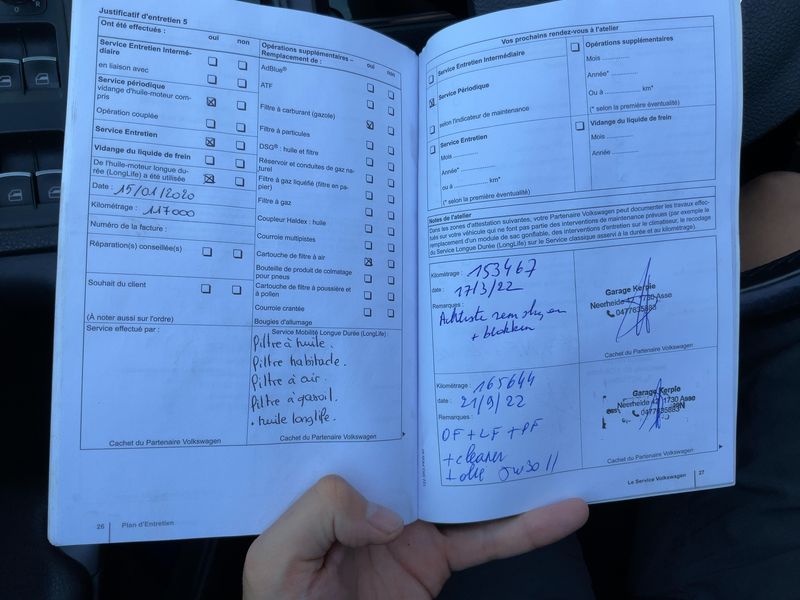 Justificatif d'entretien 5
Ont été effectués :
oui non
Service Entretien Intermé-
diaire
en liaison avec
Service périodique
vidange d'huile-moteur com-
pris
Opération couplée
Service Entretien
Vidange du liquide de frein
De l'huile-moteur longue du-
rée (LongLife) a été utilisée
Date : 15/01/2020
Kilométrage : 117000
Numéro de la facture :
Réparation(s) conseillée(s)
Souhait du client
(À noter aussi sur l'ordre)
Service effectué par :
Cachet du Partenaire Volkswagen
Opérations supplémentaires –
Remplacement de :
oui non
AdBlue®
ATF
Filtre à carburant (gazole)
Filtre à particules
DSG® : huile et filtre
Réservoir et conduites de gaz na-
turel
Filtre à gaz liquéfié (filtre en pa-
pier)
Filtre à gaz
Coupleur Haldex : huile
Courroie multipistes
Cartouche de filtre à air
Bouteille de produit de colmatage
pour pneus
Cartouche de filtre à poussière et
à pollen
Courroie crantée
Bougies d'allumage
Service Mobilité Longue Durée (LongLife) :
Filtre à huile.
Filtre habitacle.
Filtre à air.
Filtre à gasoil.
+ huile longlife.
Cachet du Partenaire Volkswagen
26 Plan d'Entretien
Vos prochains rendez-vous à l'atelier
Service Entretien Intermédiaire
Service Périodique
selon l'indicateur de maintenance
Service Entretien
Mois ............
Année* ............
ou à ............ km*
(* selon la première éventualité)
Opérations supplémentaires
Mois ............
Année* ............
Ou à ............ km*
(* selon la première éventualité)
Vidange du liquide de frein
Mois ............
Année ............
Notes de l'atelier
Dans les zones d'attestation suivantes, votre Partenaire Volkswagen peut documenter les travaux effec-
tués sur votre véhicule qui ne font pas partie des interventions de maintenance prévues (par exemple le
remplacement d'un module de sac gonflable, des interventions d'entretien sur le climatiseur, le recodage
du Service Longue Durée (LongLife) sur le Service classique asservi à la durée et au kilométrage).
Kilométrage : 153467
date : 17/3/22
Remarques :
+ blokken
Garage Kerpie
Neerheide 42, 1730 Asse
0477835883
Cachet du Partenaire Volkswagen
Kilométrage : 165644
date : 21/9/22
Remarques :
OF + LF + PF
+ cleaner
+ olie 0w30 ll
Garage Kerpie
Neerheide 42, 1730 Asse
0477835883
Cachet du Partenaire Volkswagen
Le Service Volkswagen 27